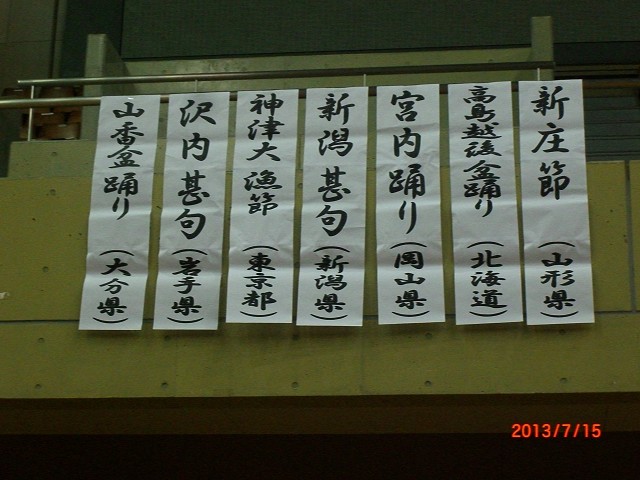 新庄節（山形県）
高島越後盆踊り（北海道）
宮内踊り（岡山県）
新潟甚句（新潟県）
神津大漁節（東京都）
沢内甚句（岩手県）
山香盆踊り（大分県）
2013/7/15